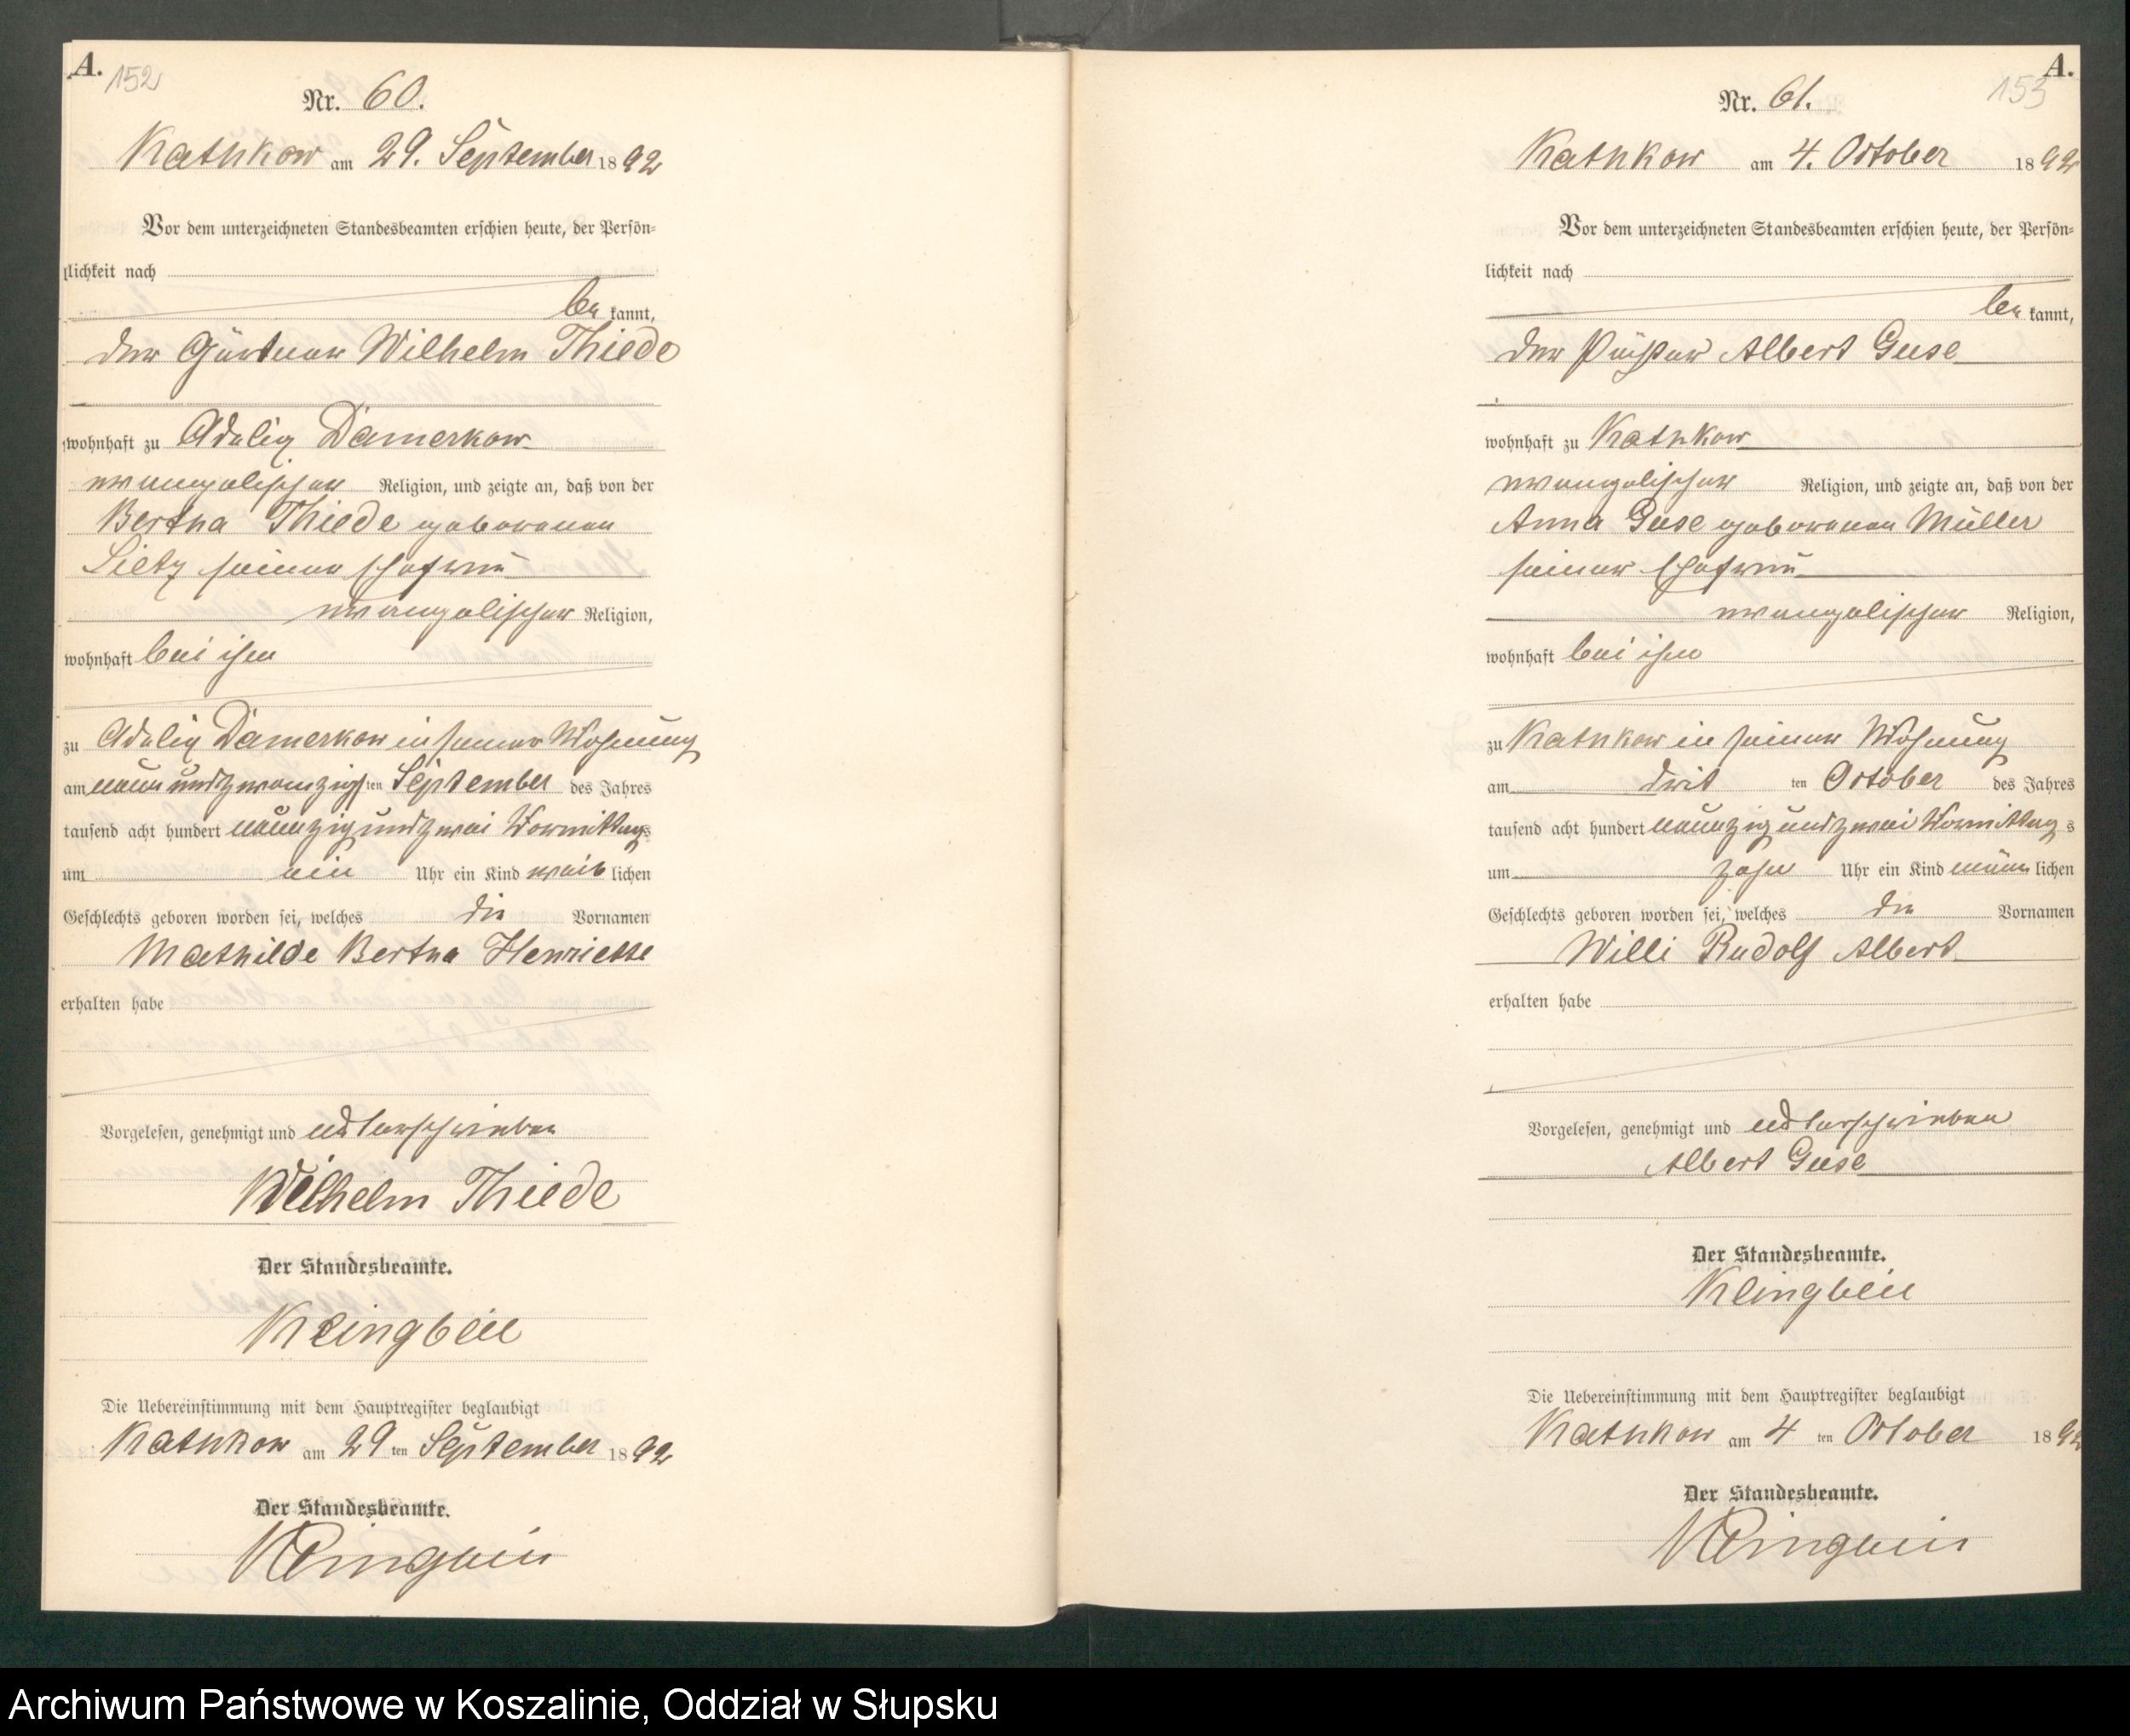 A.
152
Nr. 60.
Kathkow am 29. September 1892
Vor dem unterzeichneten Standesbeamten erschien heute, der Persön-
lichkeit nach
be kannt,
der Gärtner Wilhelm Thiede
wohnhaft zu Adelig Damerkow
evangelischer Religion, und zeigte an, daß von der
Bertha Thiede geborenen
Lietz seiner Ehefrau
evangelischer Religion,
wohnhaft bei ihm
zu Adelig Damerkow in seiner Wohnung
am neun und zwanzigsten September des Jahres
tausend acht hundert neunzig und zwei Vormittags
um ein Uhr ein Kind weiblichen
Geschlechts geboren worden sei, welches die Vornamen
Mathilde Bertha Henriette
erhalten habe
Vorgelesen, genehmigt und unterschrieben
Wilhelm Thiede
Der Standesbeamte.
Klingbeil
Die Uebereinstimmung mit dem Hauptregister beglaubigt
Kathkow am 29 ten September 1892
Der Standesbeamte.
Klingbeil
A.
153
Nr. 61.
Kathkow am 4. October 1892
Vor dem unterzeichneten Standesbeamten erschien heute, der Persön-
lichkeit nach
be kannt,
der Albert Guse
wohnhaft zu Kathkow
evangelischer Religion, und zeigte an, daß von der
Anna Guse geborenen Müller
seiner Ehefrau
evangelischer Religion,
wohnhaft bei ihm
zu Kathkow in seiner Wohnung
am drit ten October des Jahres
tausend acht hundert neunzig und zwei Vormittags
um zehn Uhr ein Kind männlichen
Geschlechts geboren worden sei, welches die Vornamen
Willi Rudolf Albert
erhalten habe
Vorgelesen, genehmigt und unterschrieben
Albert Guse
Der Standesbeamte.
Klingbeil
Die Uebereinstimmung mit dem Hauptregister beglaubigt
Kathkow am 4 ten October 1892
Der Standesbeamte.
Klingbeil
Archiwum Państwowe w Koszalinie, Oddział w Słupsku